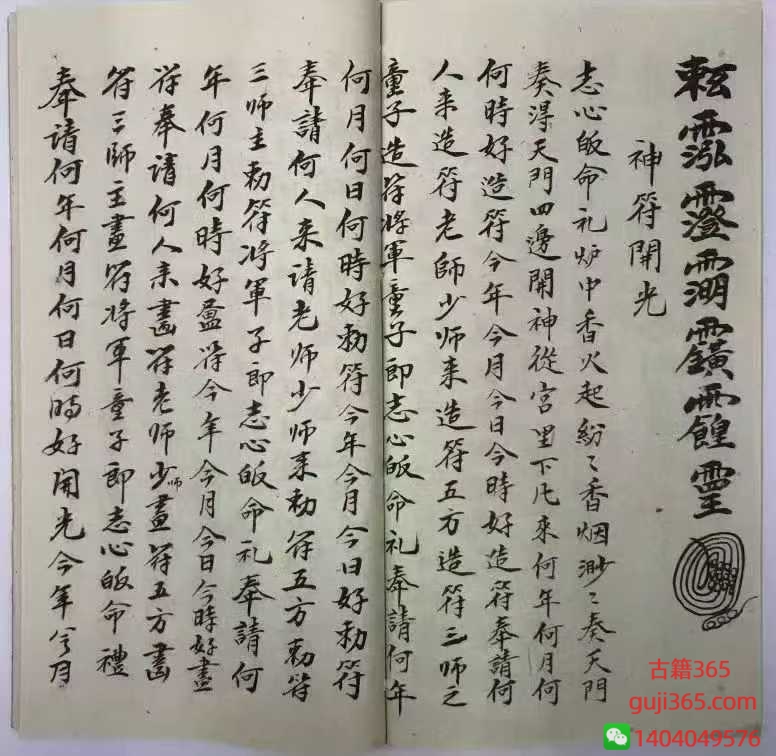 神符開光
志心皈命礼炉中香火起紛〻香烟渺〻奏天門
奏得天門四邊開神從宫里下凡來何年何月何
何時好造符今年今月今日今時好造符奉請何
人来造符老師少师来造符五方造符三师之
童子造符將軍童子即志心皈命礼奉請何年
何月何日何時好勅符今年今月今日好勅符
奉請何人来請老师少师来勅符五方勅符
三师主勅符将軍子即志心皈命礼奉請何
年何月何時好畫符今年今月今日今時好畫
符奉请何人来畫符老师少师畫符五方畫
符三師主畫符将軍童子即志心皈命禮
奉請何年何月何日何時好開光今年今月
古籍365
guji365.com
1404049576